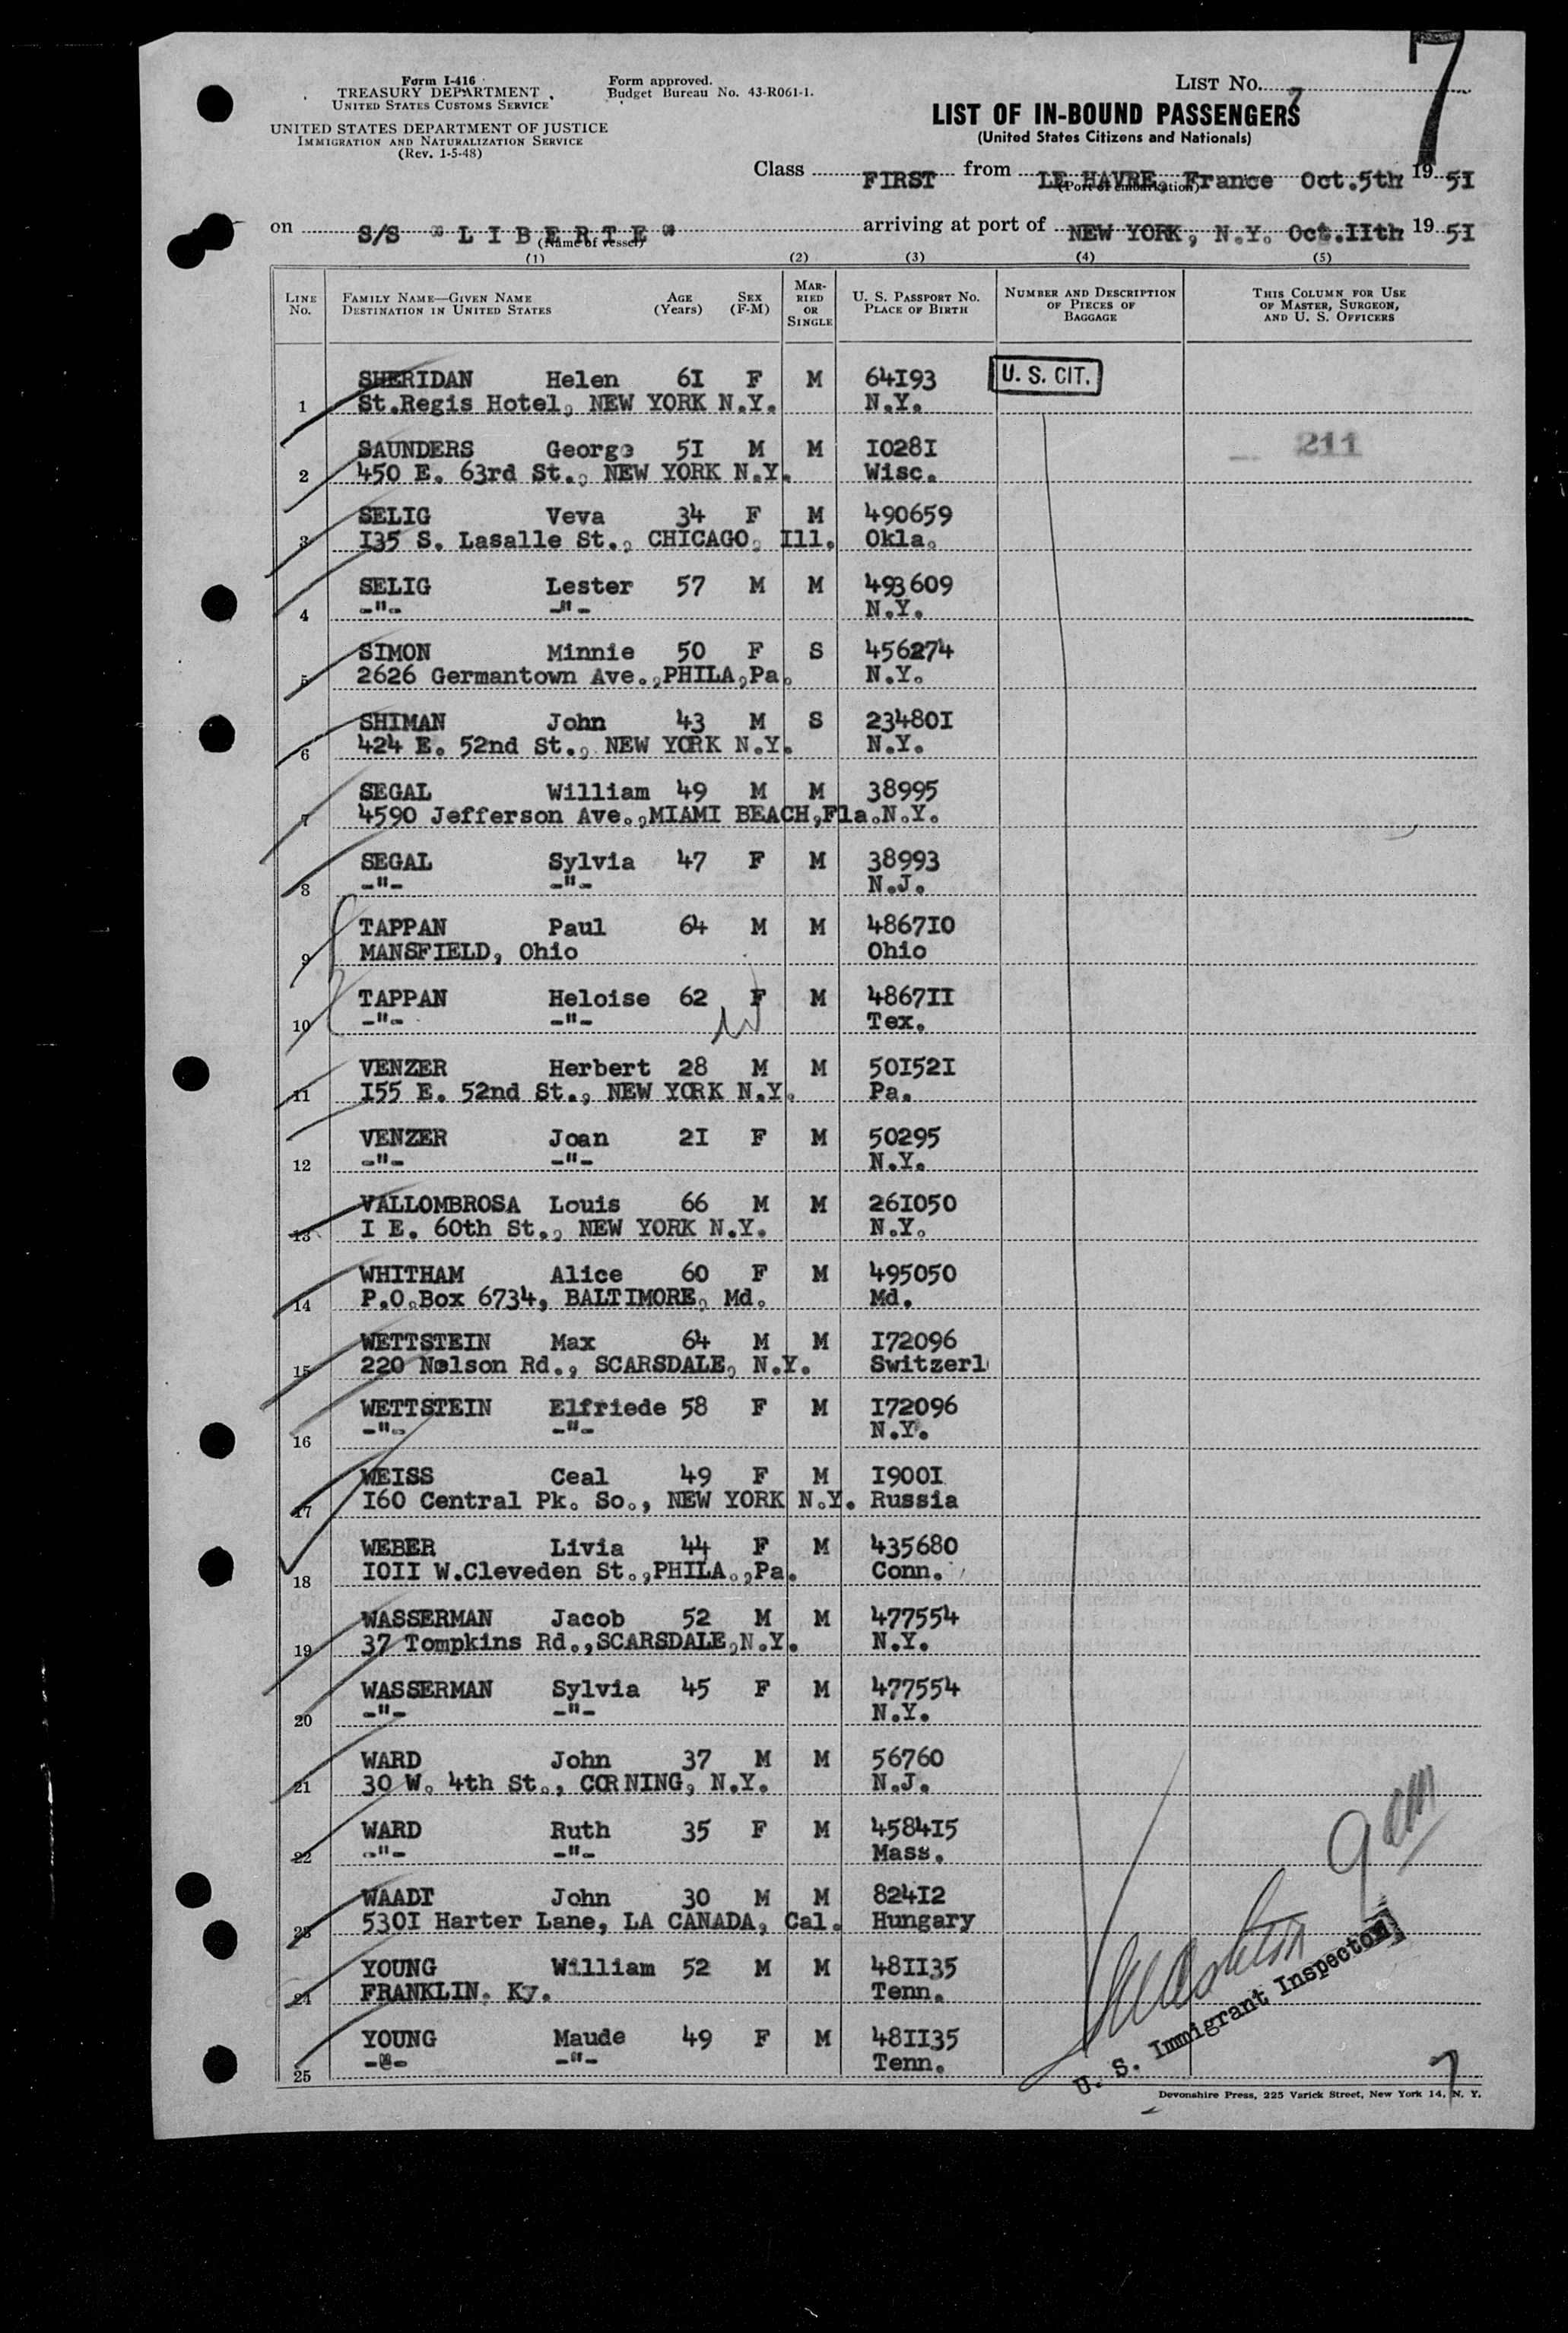 7
Form I-416
TREASURY DEPARTMENT
UNITED STATES CUSTOMS SERVICE
UNITED STATES DEPARTMENT OF JUSTICE
IMMIGRATION AND NATURALIZATION SERVICE
(Rev. 1-5-48)
Form approved.
Budget Bureau No. 43-R061-1.
LIST No. 7
LIST OF IN-BOUND PASSENGERS
(United States Citizens and Nationals)
Class FIRST from LE HAVRE, France Oct.5th 19 5I
(Port of embarkation)
on S/S "L I B E R T E" arriving at port of NEW YORK, N.Y. Oct.IIth 19 5I
(Name of vessel)
(1) (2) (3) (4) (5)
LINE No. FAMILY NAME—GIVEN NAME DESTINATION IN UNITED STATES AGE (Years) SEX (F-M) MARRIED OR SINGLE U. S. PASSPORT NO. PLACE OF BIRTH NUMBER AND DESCRIPTION OF PIECES OF BAGGAGE THIS COLUMN FOR USE OF MASTER, SURGEON, AND U. S. OFFICERS
SHERIDAN Helen 6I F M 64I93 U. S. CIT.
1 St.Regis Hotel, NEW YORK N.Y. N.Y.
SAUNDERS George 5I M M I028I 211
2 450 E. 63rd St., NEW YORK N.Y. Wisc.
SELIG Veva 34 F M 490659
3 I35 S. Lasalle St., CHICAGO, Ill. Okla.
SELIG Lester 57 M M 493609
4 -"- -"- N.Y.
SIMON Minnie 50 F S 456274
5 2626 Germantown Ave.,PHILA,Pa. N.Y.
SHIMAN John 43 M S 23480I
6 424 E. 52nd St., NEW YORK N.Y. N.Y.
SEGAL William 49 M M 38995
7 4590 Jefferson Ave.,MIAMI BEACH,Fla.N.Y.
SEGAL Sylvia 47 F M 38993
8 -"- -"- N.J.
TAPPAN Paul 64 M M 4867I0
9 MANSFIELD, Ohio Ohio
TAPPAN Heloise 62 F M 4867II
10 -"- -"- Tex.
VENZER Herbert 28 M M 50I52I
11 I55 E. 52nd St., NEW YORK N.Y. Pa.
VENZER Joan 2I F M 50295
12 -"- -"- N.Y.
VALLOMBROSA Louis 66 M M 26I050
13 I E. 60th St., NEW YORK N.Y. N.Y.
WHITHAM Alice 60 F M 495050
14 P.O.Box 6734, BALTIMORE, Md. Md.
WETTSTEIN Max 64 M M I72096
15 220 Nelson Rd., SCARSDALE, N.Y. Switzerl
WETTSTEIN Elfriede 58 F M I72096
16 -"- -"- N.Y.
WEISS Ceal 49 F M I900I
17 I60 Central Pk. So., NEW YORK N.Y. Russia
WEBER Livia 44 F M 435680
18 I0II W.Cleveden St.,PHILA.,Pa. Conn.
WASSERMAN Jacob 52 M M 477554
19 37 Tompkins Rd.,SCARSDALE,N.Y. N.Y.
WASSERMAN Sylvia 45 F M 477554
20 -"- -"- N.Y.
WARD John 37 M M 56760
21 30 W. 4th St., CORNING, N.Y. N.J.
WARD Ruth 35 F M 4584I5
22 -"- -"- Mass.
WAADT John 30 M M 824I2
23 530I Harter Lane, LA CANADA, Cal. Hungary
YOUNG William 52 M M 48II35
24 FRANKLIN. Ky. Tenn.
YOUNG Maude 49 F M 48II35
25 -"- -"- Tenn.
9 am
U. S. Immigrant Inspector
7
Devonshire Press, 225 Varick Street, New York 14, N. Y.